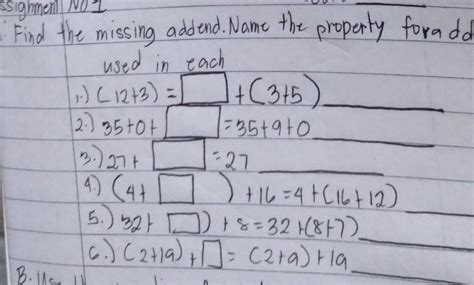 ssignment No 1
Find the missing addend. Name the property for add
used in each
1.) (12+3) = □ + (3+5)
2.) 35+0+ □ = 35+9+0
3.) 27+ □ = 27
4.) (4+ □ ) + 16 = 4+(16+12)
5.) 32+ □ ) + 8 = 32+(8+7)
6.) (2+19) + □ = (2+9)+19
B.